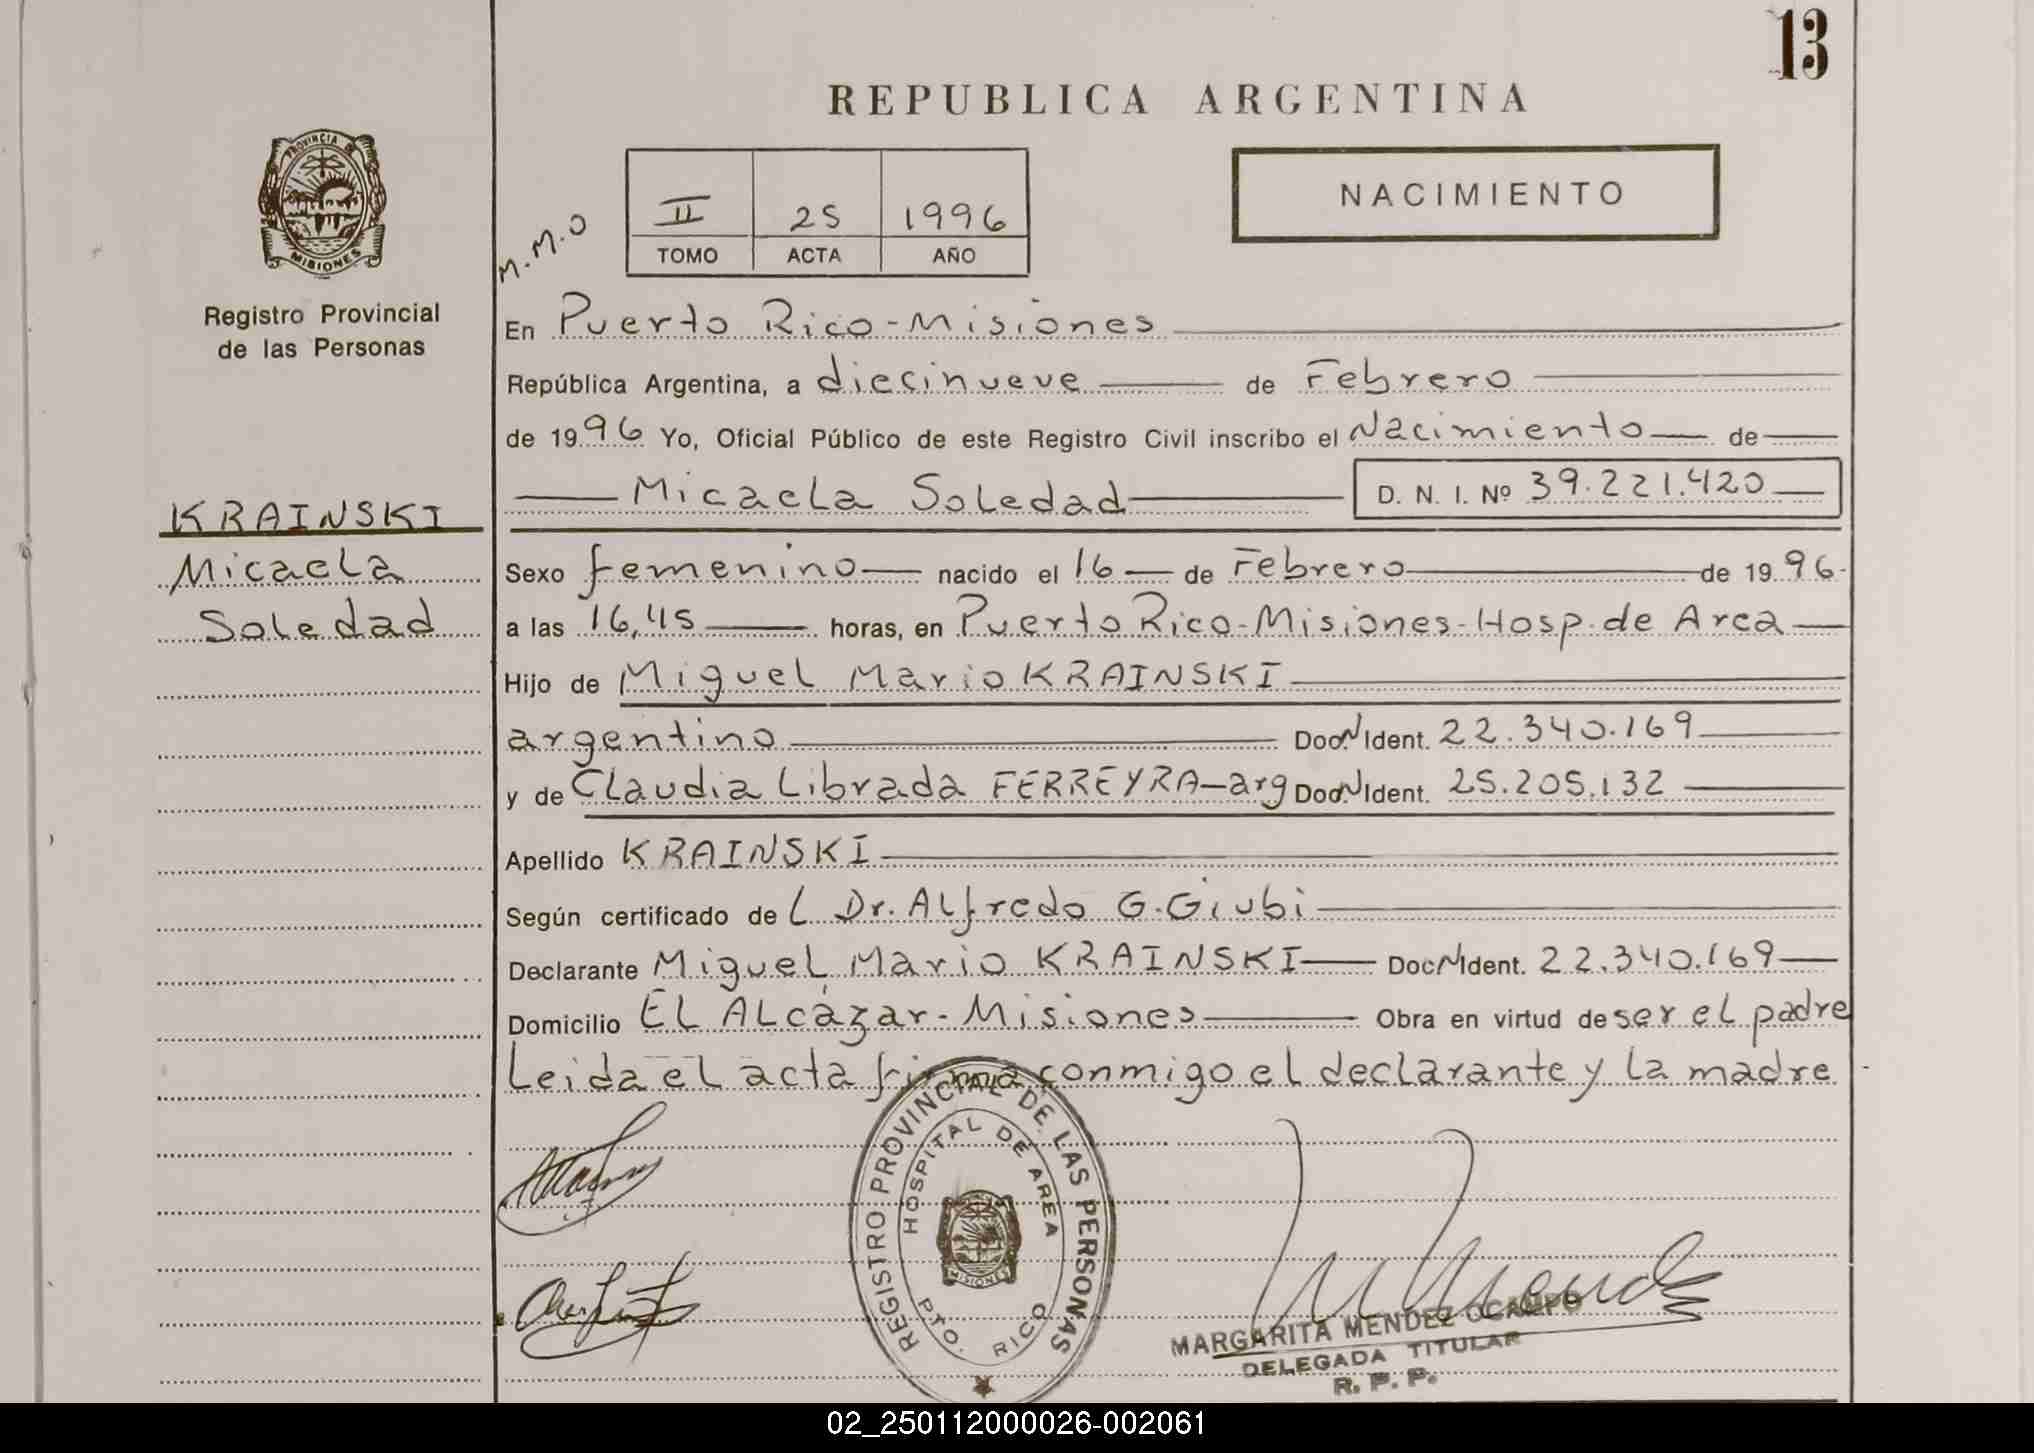 13
REPUBLICA ARGENTINA
PROVINCIA DE
MISIONES
Registro Provincial
de las Personas
M.M.O
II 25 1996
TOMO ACTA AÑO
NACIMIENTO
En Puerto Rico-Misiones
República Argentina, a diecinueve de Febrero
de 1996 Yo, Oficial Público de este Registro Civil inscribo el Nacimiento de
Micaela Soledad D. N. I. Nº 39.221.420
KRAINSKI
Micaela
Soledad
Sexo femenino nacido el 16 de Febrero de 1996
a las 16,45 horas, en Puerto Rico-Misiones-Hosp. de Area
Hijo de Miguel Mario KRAINSKI
argentino Doc. N Ident. 22.340.169
y de Claudia Librada FERREYRA-arg Doc. N Ident. 25.205.132
Apellido KRAINSKI
Según certificado de L Dr. Alfredo G. Giubi
Declarante Miguel Mario KRAINSKI Doc N Ident. 22.340.169
Domicilio El Alcázar-Misiones Obra en virtud de ser el padre
Leida el acta firma conmigo el declarante y la madre
REGISTRO PROVINCIAL DE LAS PERSONAS
HOSPITAL DE AREA
MISIONES
PTO. RICO
MARGARITA MENDEZ OCAMPO
DELEGADA TITULAR
R. P. P.
02_250112000026-002061